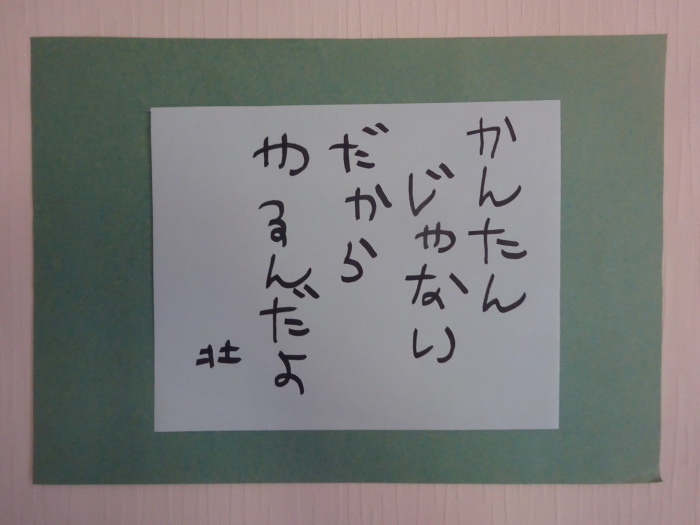 かんたん
じゃない
だから
やるんだよ
壮